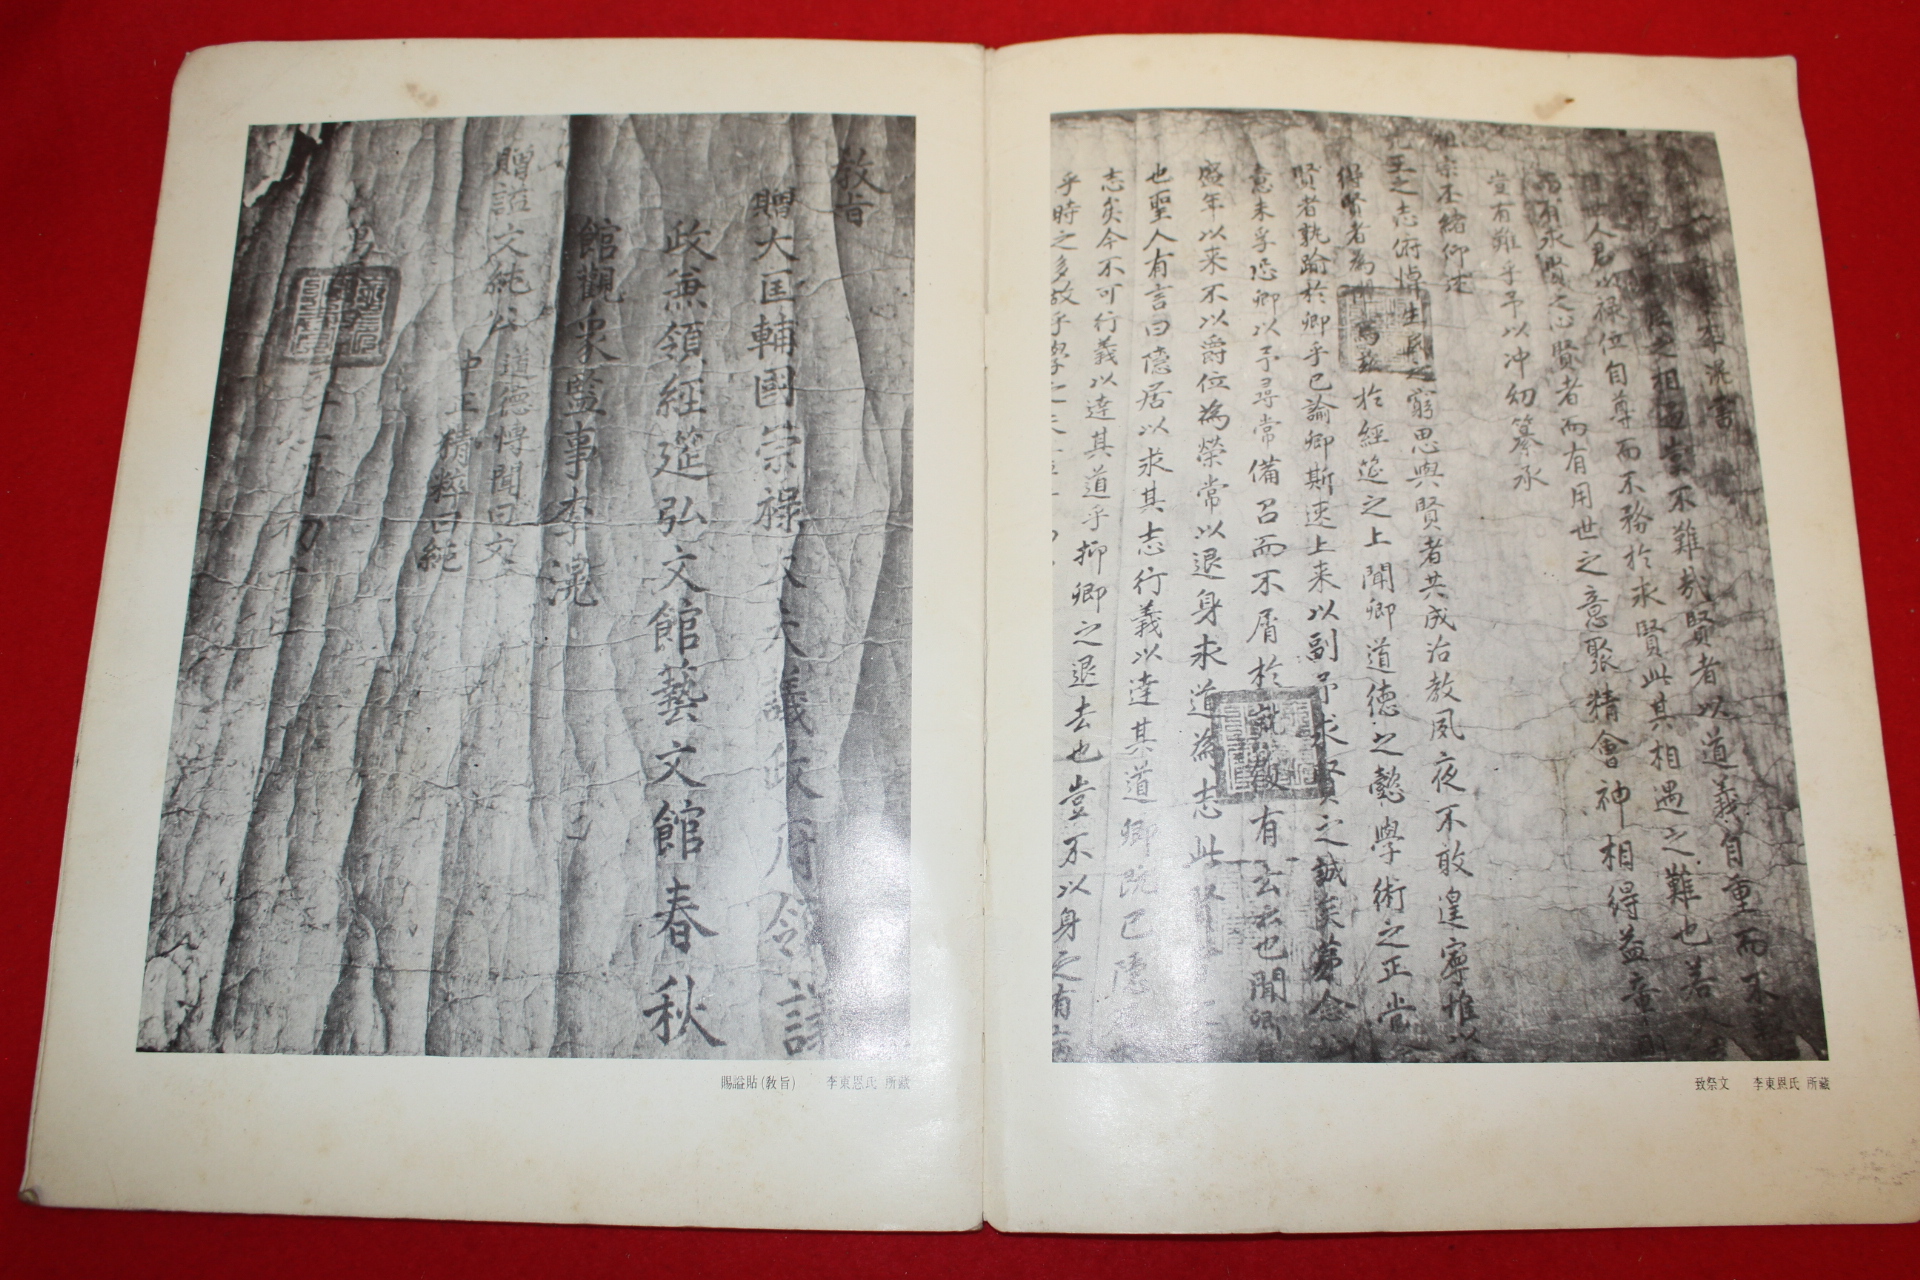 敎旨
贈大匡輔國崇祿大夫議政府領議
政兼領經筵弘文館藝文館春秋
館觀象監事李滉
贈諡文純公 道德博聞曰文
中正精粹曰純
萬
十一月初十二
賜諡貼(敎旨) 李東恩氏 所藏
相遇豈不難哉賢者以道義自重而不
人君以祿位自尊而不務於求賢此其相遇之難也若人
而有求賢之心賢者而有用世之意聚精會神相得益章
豈有難乎予以冲幼纂承
祖宗丕緒仰述
先王之志俯悼生民之窮思與賢者共成治教夙夜不敢遑寧惟以
得賢者為於經筵之上聞卿道德之懿學術之正當今
賢者孰踰於卿乎已諭卿斯速上來以副予求賢之誠矣第念
意未孚恐卿以予尋常備召而不屑於就徵有云云也聞卿
盛年以來不以爵位為榮常以退身求道為志此
也聖人有言曰隱居以求其志行義以達其道卿既已隱
志矣今不可行義以達其道乎抑卿之退去也豈不以身之有
乎時之多故乎
致祭文 李東恩氏 所藏